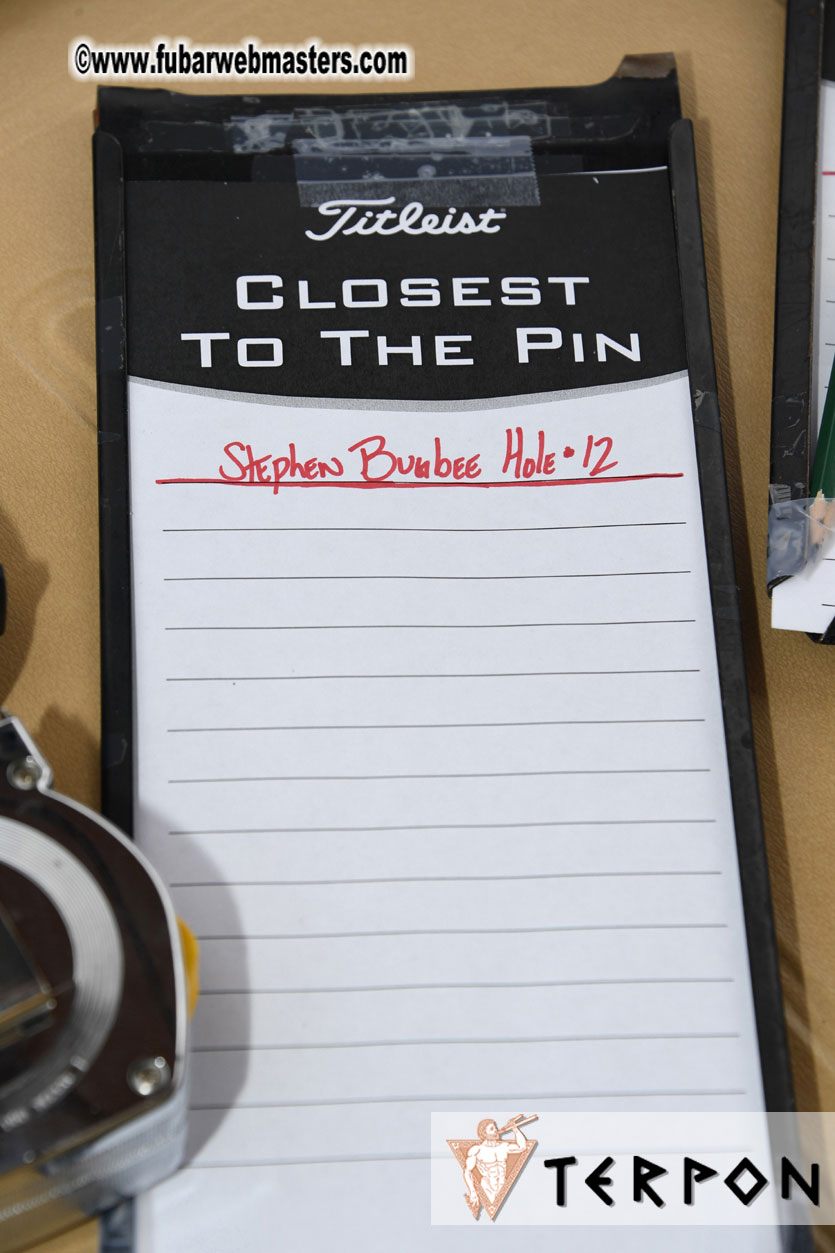 ©www.fubarwebmasters.com
Titleist
CLOSEST
TO THE PIN
Stephen Bugbee Hole • 12
TERPON